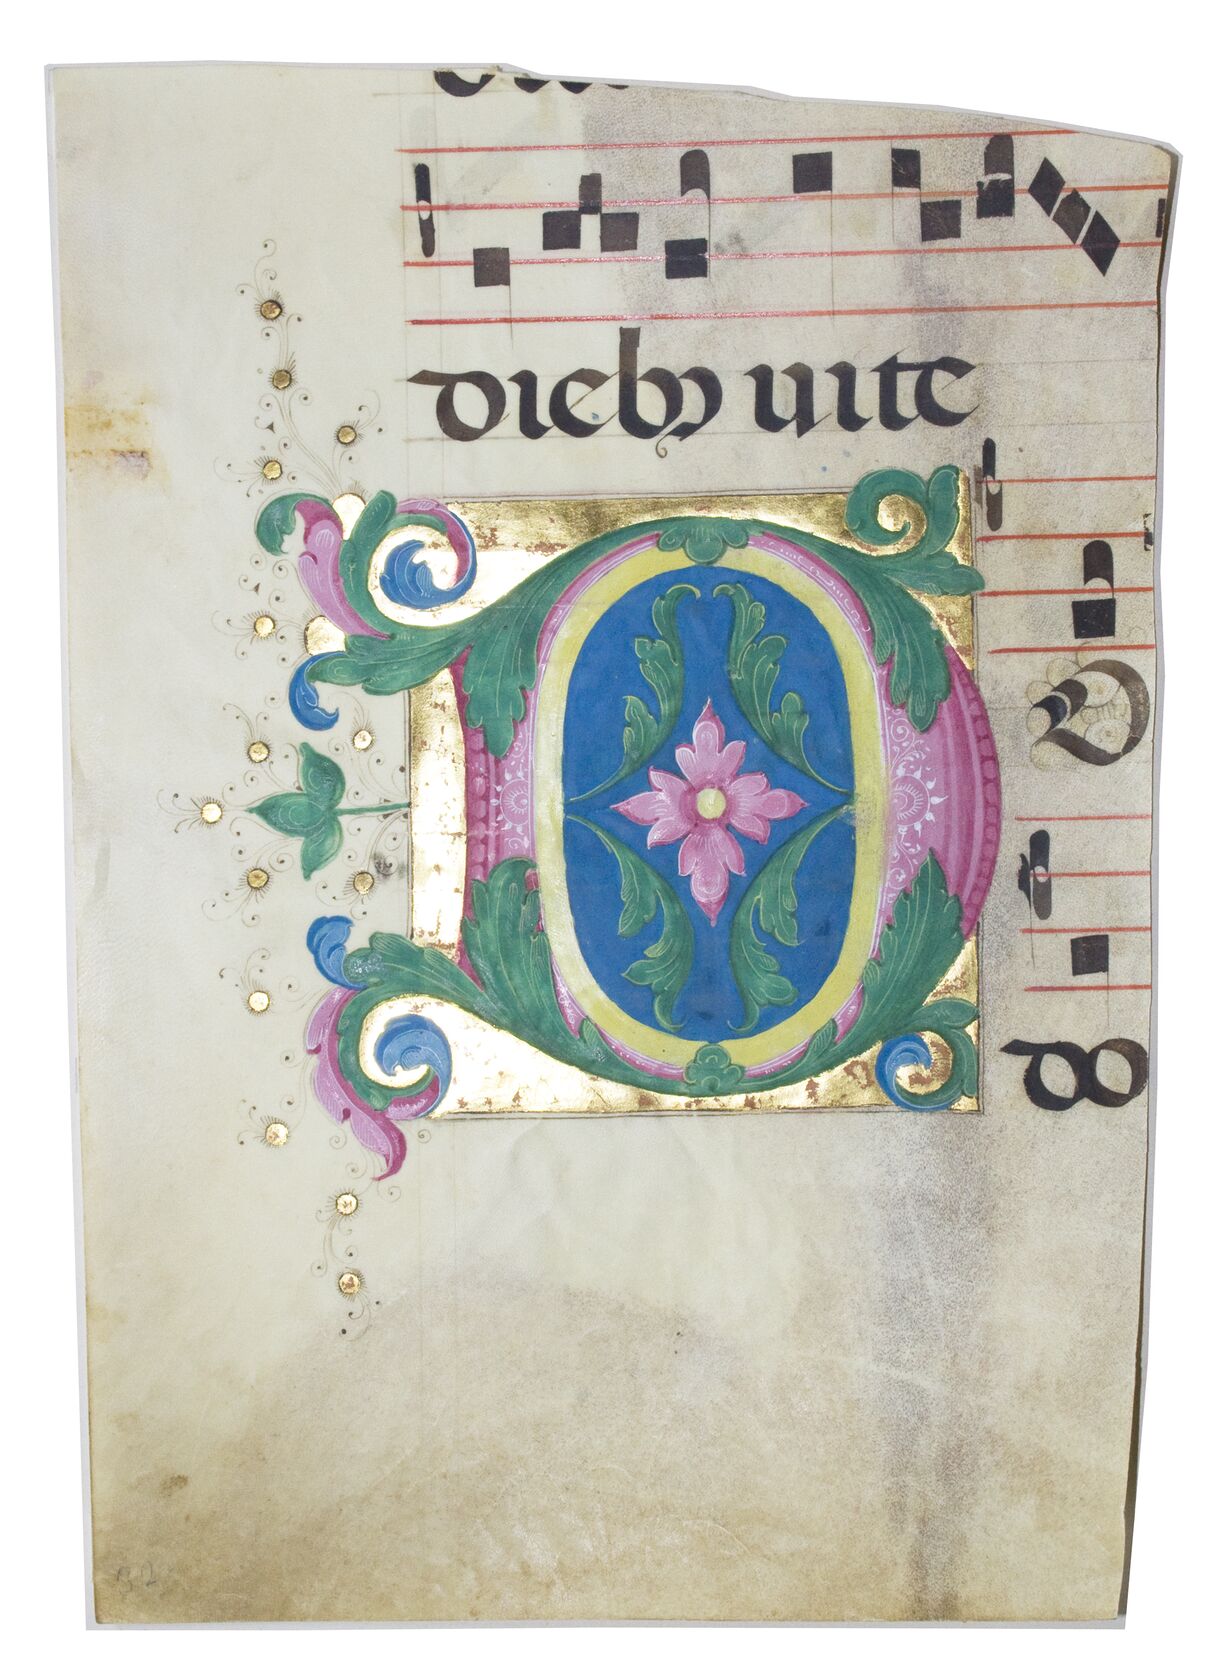 diebꝰ uite
D
do
32